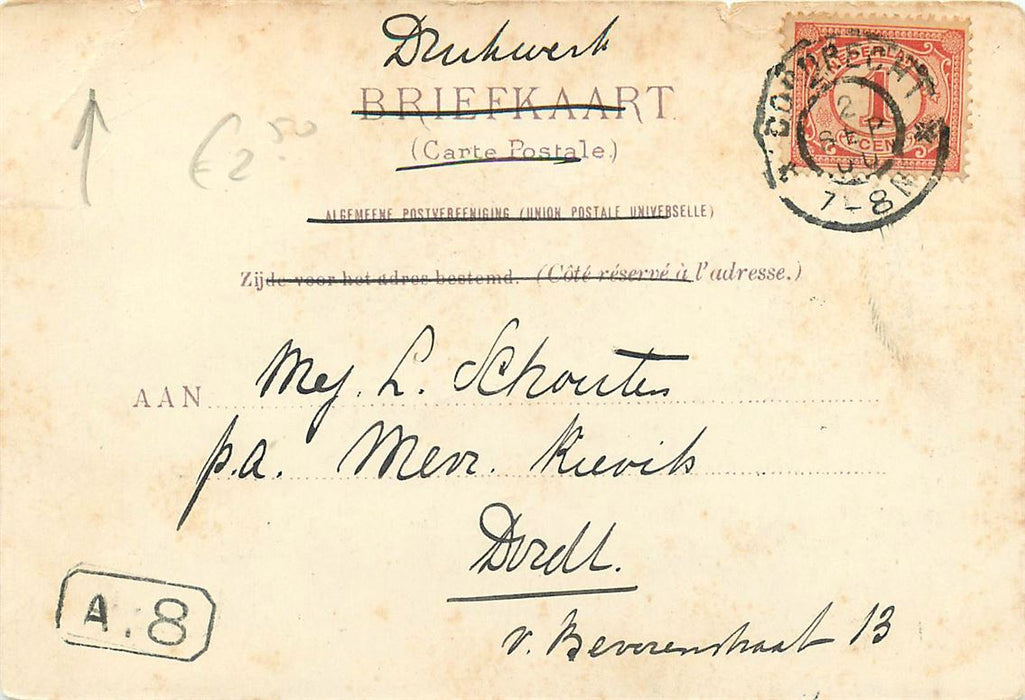 Drukwerk
BRIEFKAART
(Carte Postale.)
ALGEMEENE POSTVEREENIGING (UNION POSTALE UNIVERSELLE)
Zijde voor het adres bestemd. (Côté réservé à l'adresse.)
€ 2.50
DORDRECHT
2
SEP
7-8N
NEDERL
1
CENT
AAN Mej. L. Schouten
p.a. Mevr. Kievits
Dordt.
v. Beverenstraat 13
A.8